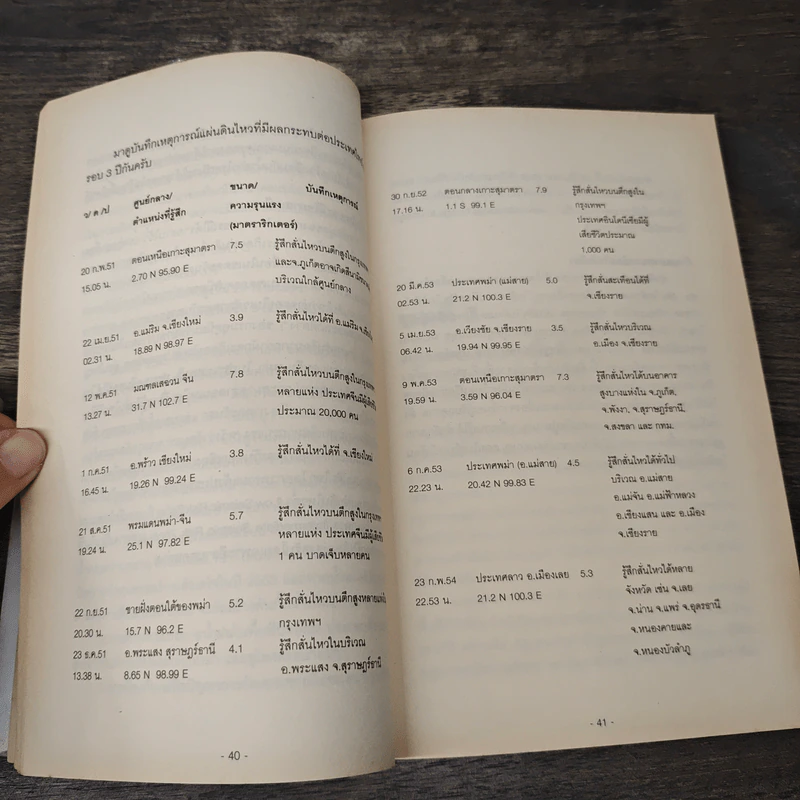 มาดูบันทึกเหตุการณ์แผ่นดินไหวที่มีผลกระทบต่อประเทศไทย
รอบ 3 ปีกันครับ
ว/ ด /ป ศูนย์กลาง/ ขนาด/ บันทึกเหตุการณ์
ตำแหน่งที่รู้สึก ความรุนแรง
(มาตราริกเตอร์)
20 ก.พ.51 ตอนเหนือเกาะสุมาตรา 7.5 รู้สึกสั่นไหวบนตึกสูงในกรุงเทพฯ
15.05 น. 2.70 N 95.90 E และจ.ภูเก็ตอาจเกิดสึนามิ
บริเวณใกล้ศูนย์กลาง
22 เม.ย.51 อ.แมริม จ.เชียงใหม่ 3.9 รู้สึกสั่นไหวได้ที่ อ.แมริม
02.31 น. 18.89 N 98.97 E
12 พ.ค.51 มณฑลเสฉวน จีน 7.8 รู้สึกสั่นไหวบนตึกสูงในกรุงเทพฯ
13.27 น. 31.7 N 102.7 E หลายแห่ง ประเทศจีนมีผู้เสียชีวิต
ประมาณ 20,000 คน
1 ก.ค.51 อ.พร้าว เชียงใหม่ 3.8 รู้สึกสั่นไหวได้ที่ จ.เชียงใหม่
16.45 น. 19.26 N 99.24 E
21 ส.ค.51 พรมแดนพม่า-จีน 5.7 รู้สึกสั่นไหวบนตึกสูงในกรุงเทพฯ
19.24 น. 25.1 N 97.82 E หลายแห่ง ประเทศจีนมีผู้เสียชีวิต
1 คน บาดเจ็บหลายคน
22 ก.ย.51 ชายฝั่งตอนใต้ของพม่า 5.2 รู้สึกสั่นไหวบนตึกสูงหลายแห่ง
20.30 น. 15.7 N 96.2 E กรุงเทพฯ
23 ธ.ค.51 อ.พระแสง สุราษฎร์ธานี 4.1 รู้สึกสั่นไหวในบริเวณ
13.38 น. 8.65 N 98.99 E อ.พระแสง จ.สุราษฎร์ธานี
- 40 -
30 ก.ย.52 ตอนกลางเกาะสุมาตรา 7.9 รู้สึกสั่นไหวบนตึกสูงใน
17.16 น. 1.1 S 99.1 E กรุงเทพฯ
ประเทศอินโดนีเซียมีผู้
เสียชีวิตประมาณ
1,000 คน
20 มี.ค.53 ประเทศพม่า (แม่สาย) 5.0 รู้สึกสั่นสะเทือนได้ที่
02.53 น. 21.2 N 100.3 E จ.เชียงราย
5 เม.ย.53 อ.เวียงชัย จ.เชียงราย 3.5 รู้สึกสั่นไหวบริเวณ
06.42 น. 19.94 N 99.95 E อ.เมือง จ.เชียงราย
9 พ.ค.53 ตอนเหนือเกาะสุมาตรา 7.3 รู้สึกสั่นไหวได้บนอาคาร
19.59 น. 3.59 N 96.04 E สูงบางแห่งใน จ.ภูเก็ต,
จ.พังงา, จ.สุราษฎร์ธานี,
จ.สงขลา และ กทม.
6 ก.ค.53 ประเทศพม่า (อ.แม่สาย) 4.5 รู้สึกสั่นไหวได้ทั่วไป
22.23 น. 20.42 N 99.83 E บริเวณ อ.แม่สาย
อ.แม่จัน อ.แม่ฟ้าหลวง
อ.เชียงแสน และ อ.เมือง
จ.เชียงราย
23 ก.พ.54 ประเทศลาว อ.เมืองเลย 5.3 รู้สึกสั่นไหวได้หลาย
22.53 น. 21.2 N 100.3 E จังหวัด เช่น จ.เลย
จ.น่าน จ.แพร่ จ.อุดรธานี
จ.หนองคายและ
จ.หนองบัวลำภู
- 41 -